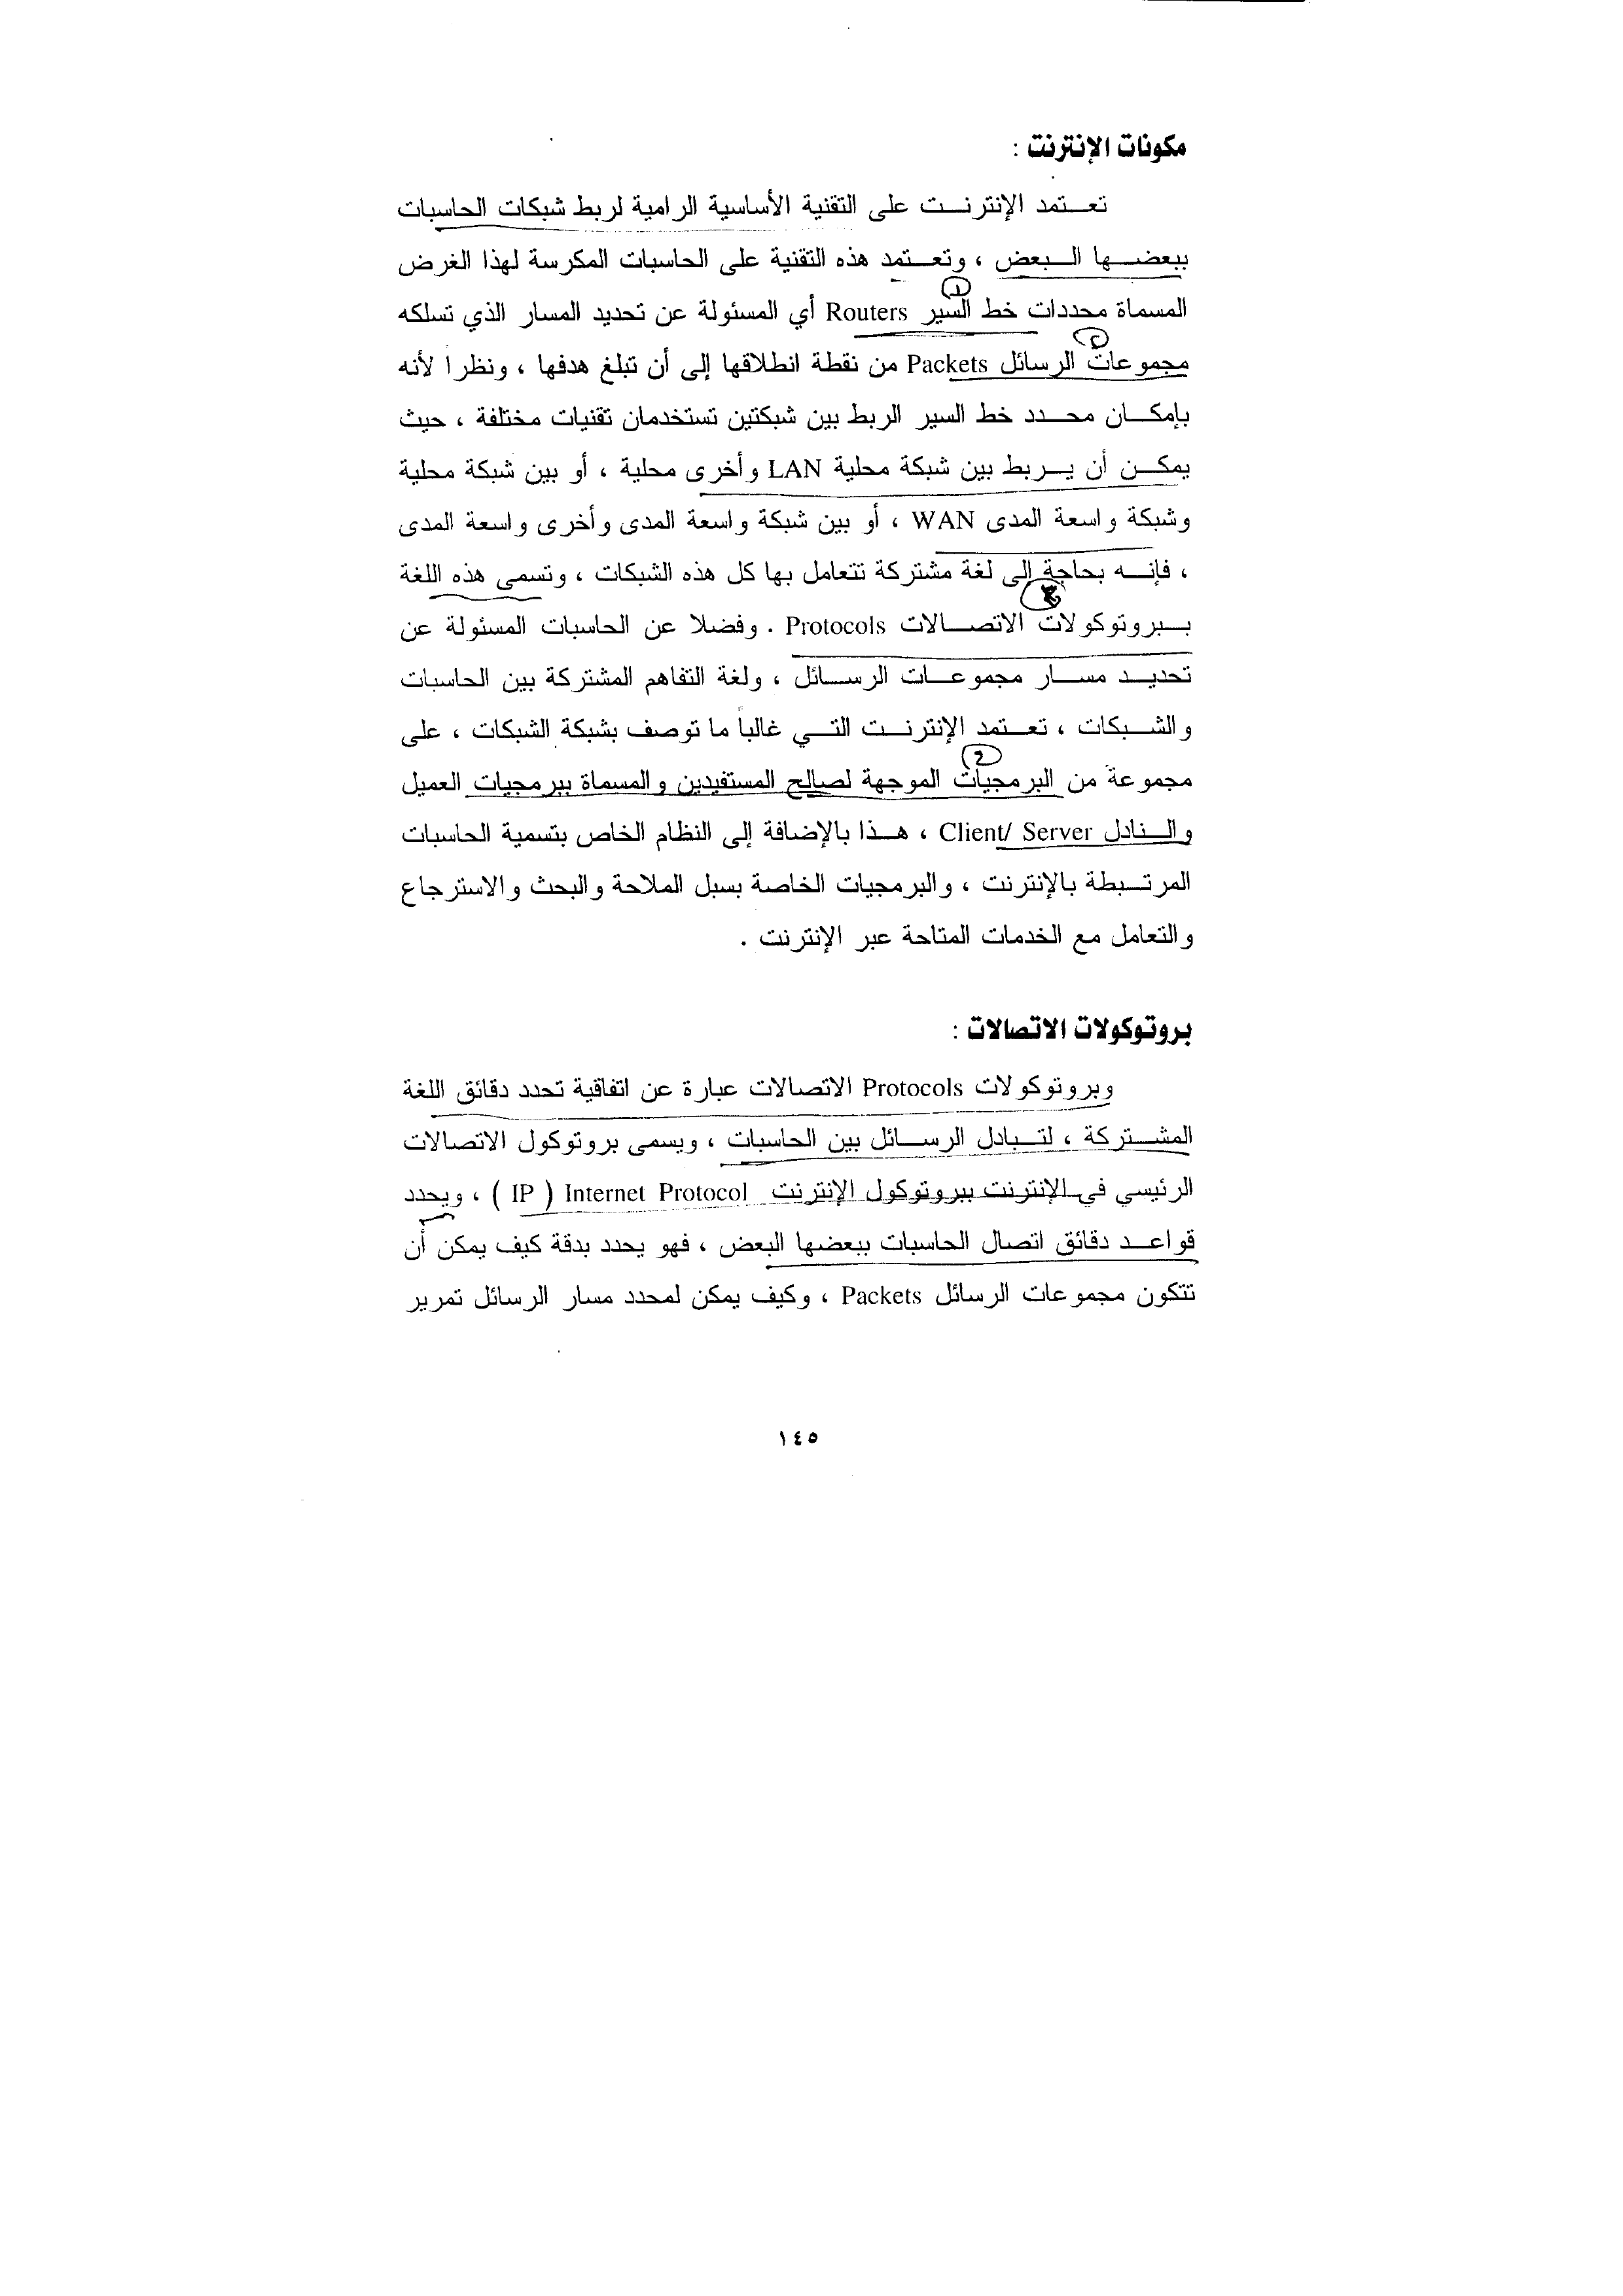 مكونات الإنترنت :
تعتمد الإنترنت على التقنية الأساسية الرامية لربط شبكات الحاسبات
ببعضها البعض ، وتعتمد هذه التقنية على الحاسبات المكرسة لهذا الغرض
المسماة محددات خط السير Routers أي المسئولة عن تحديد المسار الذي تسلكه
مجموعات الرسائل Packets من نقطة انطلاقها إلى أن تبلغ هدفها ، ونظراً لأنه
بإمكان محدد خط السير الربط بين شبكتين تستخدمان تقنيات مختلفة ، حيث
يمكن أن يربط بين شبكة محلية LAN وأخرى محلية ، أو بين شبكة محلية
وشبكة واسعة المدى WAN ، أو بين شبكة واسعة المدى وأخرى واسعة المدى
، فإنه بحاجة إلى لغة مشتركة تتعامل بها كل هذه الشبكات ، وتسمى هذه اللغة
ببروتوكولات الاتصالات Protocols . وفضلا عن الحاسبات المسئولة عن
تحديد مسار مجموعات الرسائل ، ولغة التفاهم المشتركة بين الحاسبات
والشبكات ، تعتمد الإنترنت التي غالباً ما توصف بشبكة الشبكات ، على
مجموعة من البرمجيات الموجهة لصالح المستفيدين والمسماة ببرمجيات العميل
والنادل Client/ Server ، هذا بالإضافة إلى النظام الخاص بتسمية الحاسبات
المرتبطة بالإنترنت ، والبرمجيات الخاصة بسبل الملاحة والبحث والاسترجاع
والتعامل مع الخدمات المتاحة عبر الإنترنت .
بروتوكولات الاتصالات :
وبروتوكولات Protocols الاتصالات عبارة عن اتفاقية تحدد دقائق اللغة
المشتركة ، لتبادل الرسائل بين الحاسبات ، ويسمى بروتوكول الاتصالات
الرئيسي في الإنترنت ببروتوكول الإنترنت Internet Protocol ( IP ) ، ويحدد
قواعد دقائق اتصال الحاسبات ببعضها البعض ، فهو يحدد بدقة كيف يمكن أن
تتكون مجموعات الرسائل Packets ، وكيف يمكن لمحدد مسار الرسائل تمرير
١٤٥